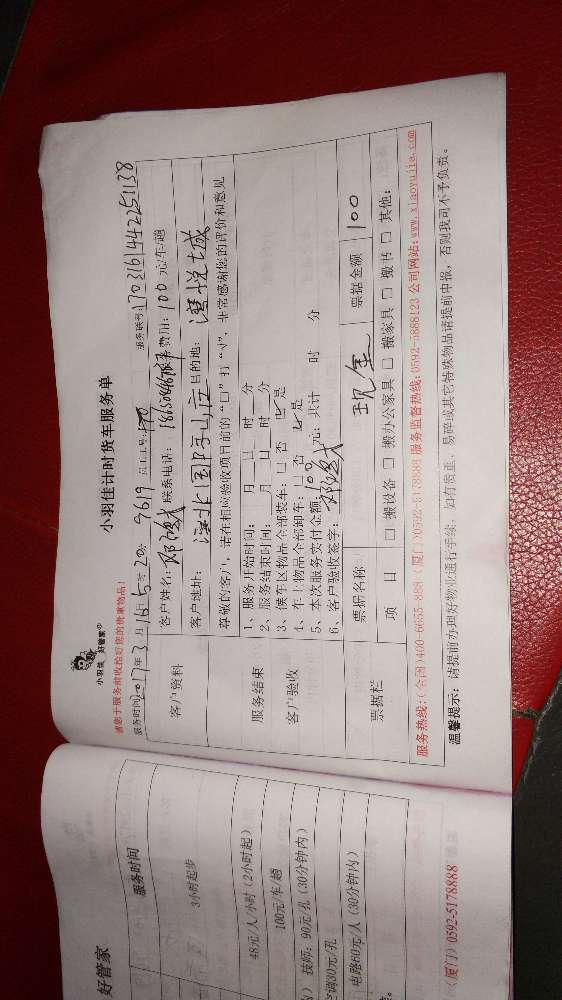 小羽佳 好管家
小羽佳计时货车服务单
请您于服务前收捡好您的贵重物品!
服务时间2017年3月16日5时20分 9619 服务联号:1703161442251138
客户资料
客户姓名: 联系电话: 费用:100元/车/趟
客户地址: 目的地:湾悦城
尊敬的客户, 请在相应验收项目前的“□”打“√”, 非常感谢您的评价和意见
服务结束
客户验收
1、服务开始时间: 月 日 时 分
2、服务结束时间: 月 日 时 分
3、候车区物品全部装车:□ 否 ☑ 是
4、车上物品全部卸车:□ 否 ☑ 是
5、本次服务实付金额 100 元; 共计 时 分
6、客户验收签字:
票据栏
票据名称 现金 票据金额 100
项 目 □ 搬设备 □ 搬办公家具 □ 搬家具 □ 搬书 □ 其他:
服务热线:(全国)400-6655-888 (厦门)0592-5178888 服务监督热线:0592-5888123 公司网站:www.xiaoyujia.com
温馨提示: 请提前办理好物业通行手续, 如有贵重、易碎或其它特殊物品请提前申报, 否则我司不予负责。
好管家
服务时间
3小时起步
48元/人/小时(2小时起)
100元/车/趟
技师: 90元/孔(30分钟内)
空调30元/孔
电路60元/人(30分钟内)
(厦门)0592-5178888